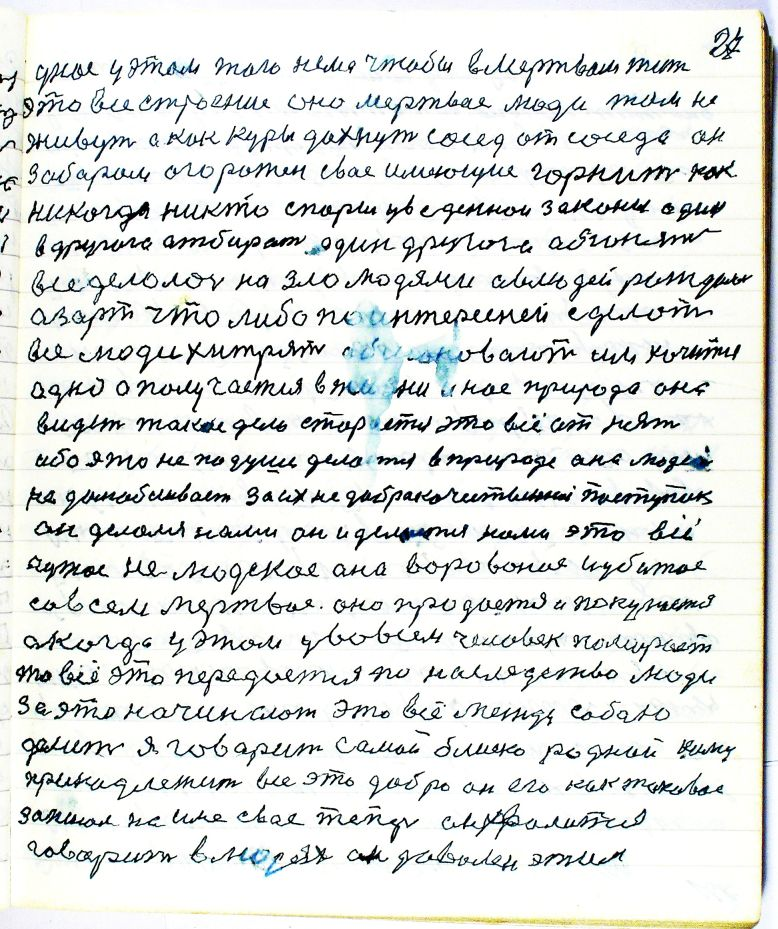 27
дное у этом того нема чтобы в мертвом жит
это все строение оно мертвае люди там не
живут а как куры дохнут сосед от соседа он
забарам огорожен свае имеющие горнит как
никогда никто споры уведенной законы один
в другога атбират один другога абгонят
все делают на зло людями а влюдей рождают
азарт что либо по интересней сделат
все люди хитрят об новают им хочится
одно а получается в жизни иное природа она
видит такое дело стороется это всё от нят
або это не по душе делается в природе она людей
за их не добракачиственный поступок
он делался нами он и делается нами это всё
чужое не людское ана воровоное и убитое
совсем мертвае. оно продоется и покупается
а когда у этом у вовсем человек помирает
то всё это передоется по наследство люди
за это начинают это всё между собаю
делит я говарит самай близко родной кому
принадлежит все это добро он его как таковое
записал на имя свае теперь он хвалится
говарит в людях он даволен этим